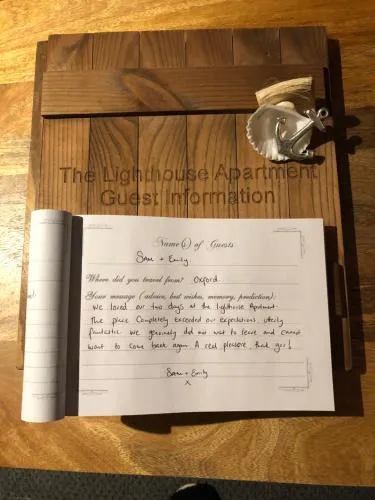 The Lighthouse Apartment
Guest Information
Name(s) of Guests
Sam + Emily
Where did you travel from? Oxford
Your message (advice, best wishes, memory, prediction):
We loved our two days at the Lighthouse Apartment.
The place completely exceeded our expectations, utterly
fantastic. We genuinely did not want to leave and cannot
wait to come back again. A real pleasure, thank you!
Sam + Emily
X